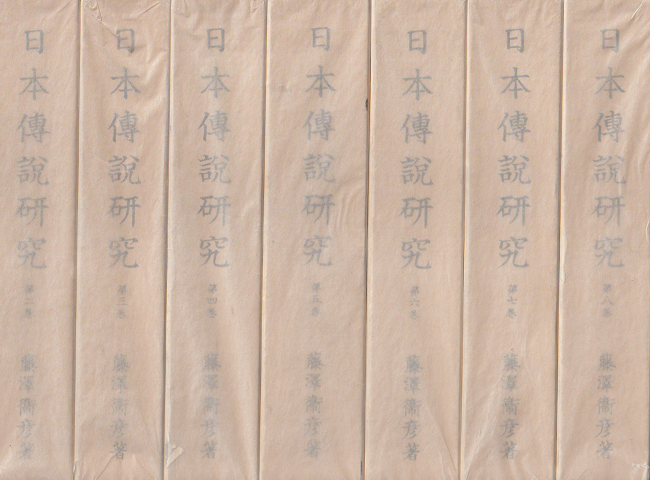 日本傳說研究 第二巻 藤澤衞彦著
日本傳說研究 第三巻 藤澤衞彦著
日本傳說研究 第四巻 藤澤衞彦著
日本傳說研究 第五巻 藤澤衞彦著
日本傳說研究 第六巻 藤澤衞彦著
日本傳說研究 第七巻 藤澤衞彦著
日本傳說研究 第八巻 藤澤衞彦著